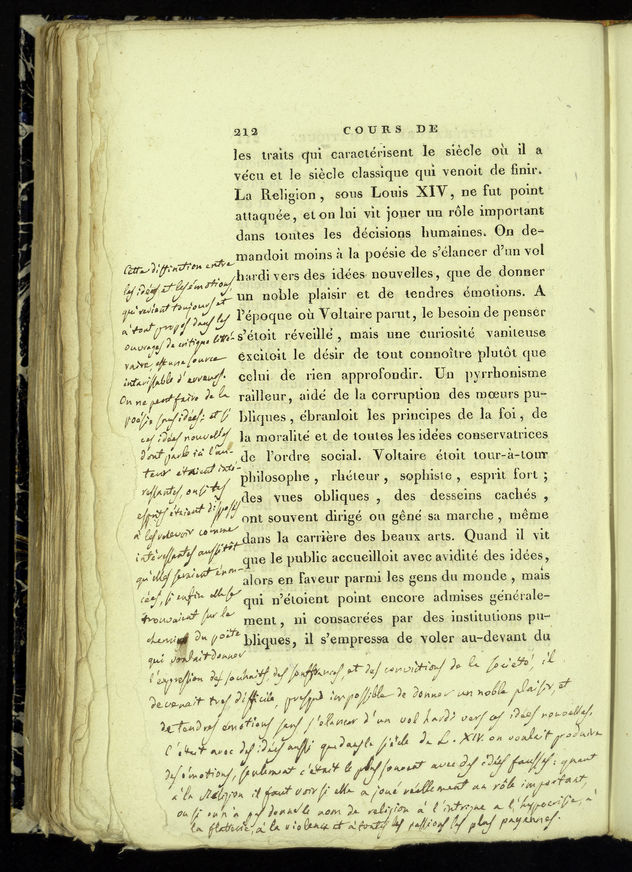 212 COURS DE
les traits qui caractérisent le siècle où il a
vécu et le siècle classique qui venoit de finir.
La Religion, sous Louis XIV, ne fut point
attaquée, et on lui vit jouer un rôle important
dans toutes les décisions humaines. On de-
mandoit moins à la poésie de s'élancer d'un vol
hardi vers des idées nouvelles, que de donner
un noble plaisir et de tendres émotions. A
l'époque où Voltaire parut, le besoin de penser
s'étoit réveillé, mais une curiosité vaniteuse
excitoit le désir de tout connoître plutôt que
celui de rien approfondir. Un pyrrhonisme
railleur, aidé de la corruption des mœurs pu-
bliques, ébranloit les principes de la foi, de
la moralité et de toutes les idées conservatrices
de l'ordre social. Voltaire étoit tour-à-tour
philosophe, rhéteur, sophiste, esprit fort ;
des vues obliques, des desseins cachés,
ont souvent dirigé ou gêné sa marche, même
dans la carrière des beaux arts. Quand il vit
que le public accueilloit avec avidité des idées,
alors en faveur parmi les gens du monde, mais
qui n'étoient point encore admises générale-
ment, ni consacrées par des institutions pu-
bliques, il s'empressa de voler au-devant du
Cette distinction entre
les idées et les émotions
qui revient toujours et
à tout propos dans les
ouvrages de critique litté-
raire, est une source
intarissable d'erreurs.
On ne peut faire de la
poésie sans idées: et si
ces idées nouvelles
dont parle ici l'au-
teur étaient inté-
ressantes, ou si les
esprits étaient disposés
à les recevoir comme
intéressantes aussitôt
qu'elles seraient énon-
cées, si enfin elles se
trouvaient sur le
chemin du poëte
qui voulait donner
l'expression des souhaits, des souffrances, et des convictions de la société, il
devenait très difficile, presque impossible de donner un noble plaisir, et
de tendres émotions sans s'élancer d'un vol hardi vers ces idées nouvelles.
C'était avec des idées aussi que dans le siècle de L. XIV on voulait produire
des émotions, seulement c'était le plus souvent avec des idées fausses: quant
à la religion il faut voir si elle a joué réellement un rôle important,
ou si on n'a pas donné le nom de religion à l'intrigue, à l'hypocrisie, à
la flatterie, à la violence et à toutes les passions les plus payennes.